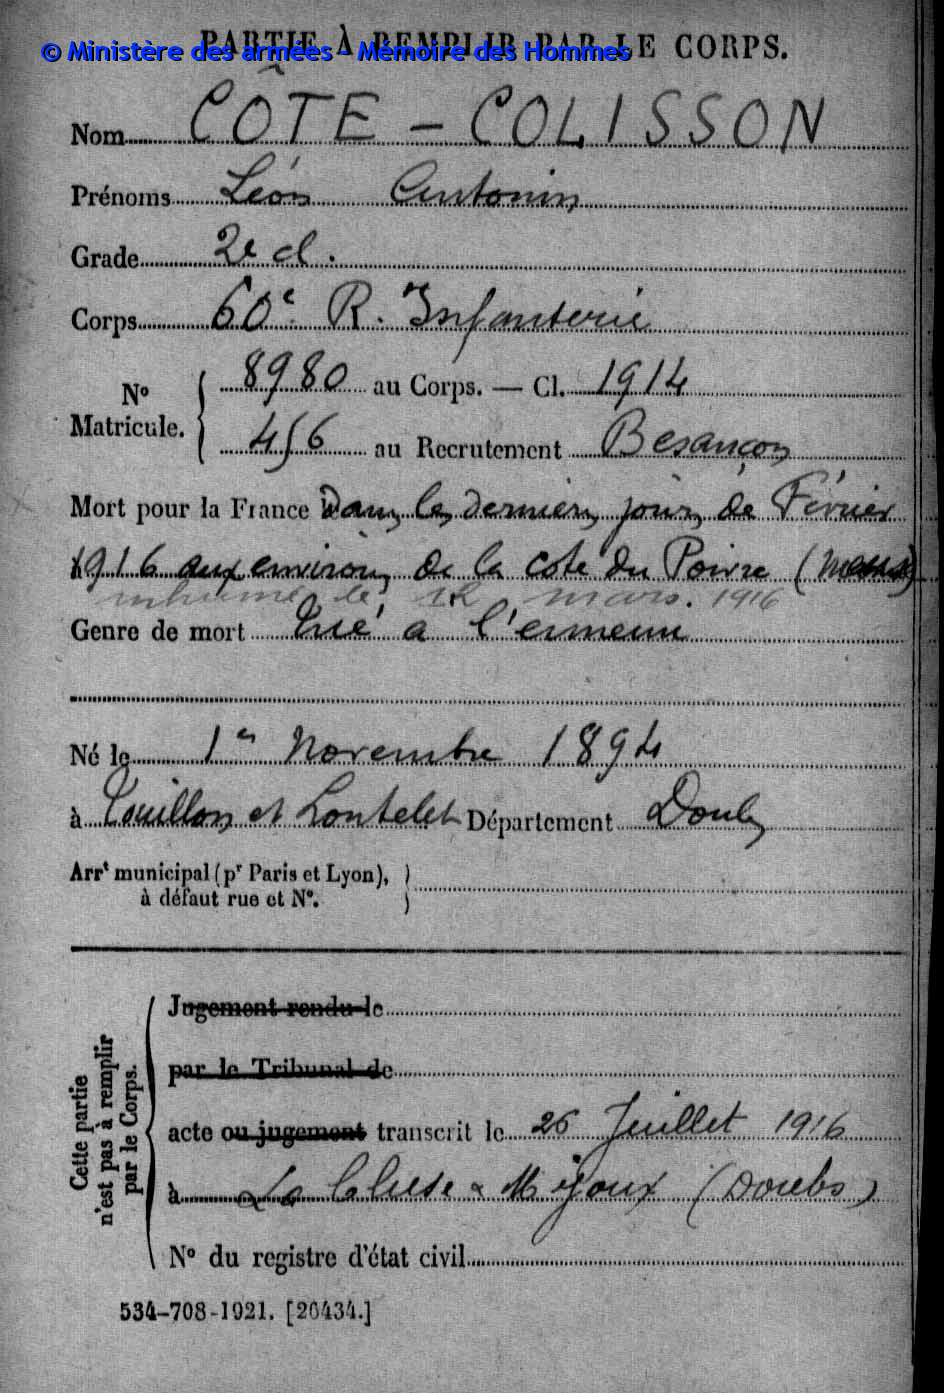 PARTIE À REMPLIR PAR LE CORPS.
© Ministère des armées - Mémoire des Hommes
Nom CÔTE - COLISSON
Prénoms Léon Antonin
Grade 2e cl.
Corps 60e R. Infanterie
No Matricule. 8980 au Corps. — Cl. 1914
456 au Recrutement Besançon
Mort pour la France Dans les derniers jours de Février
1916 aux environs de la cote du Poivre (Meuse)
inhumé le 12 mars. 1916
Genre de mort Tué à l'ennemi
Né le 1er Novembre 1894
à Touillon et Loutelet Département Doubs
Arrt municipal (pr Paris et Lyon),
à défaut rue et No.
Cette partie
n'est pas à remplir
par le Corps.
Jugement rendu le
par le Tribunal de
acte ou jugement transcrit le 26 Juillet 1916
à La Cluse & Mijoux (Doubs)
No du registre d'état civil
534-708-1921. [26434.]